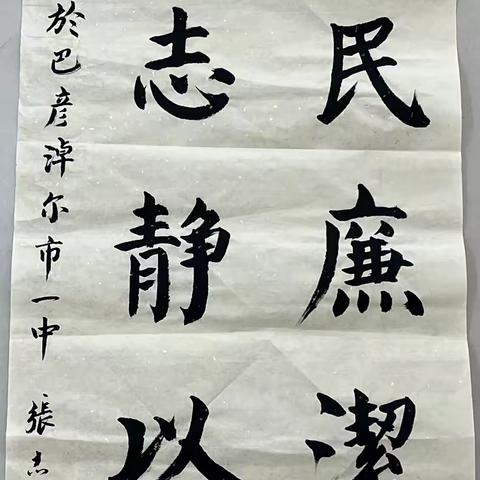 民廉潔
志静以
於巴彦淖尔市一中 張志